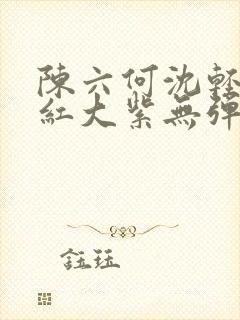 陳六何沈輕
紅大紫無彈
鈺珏